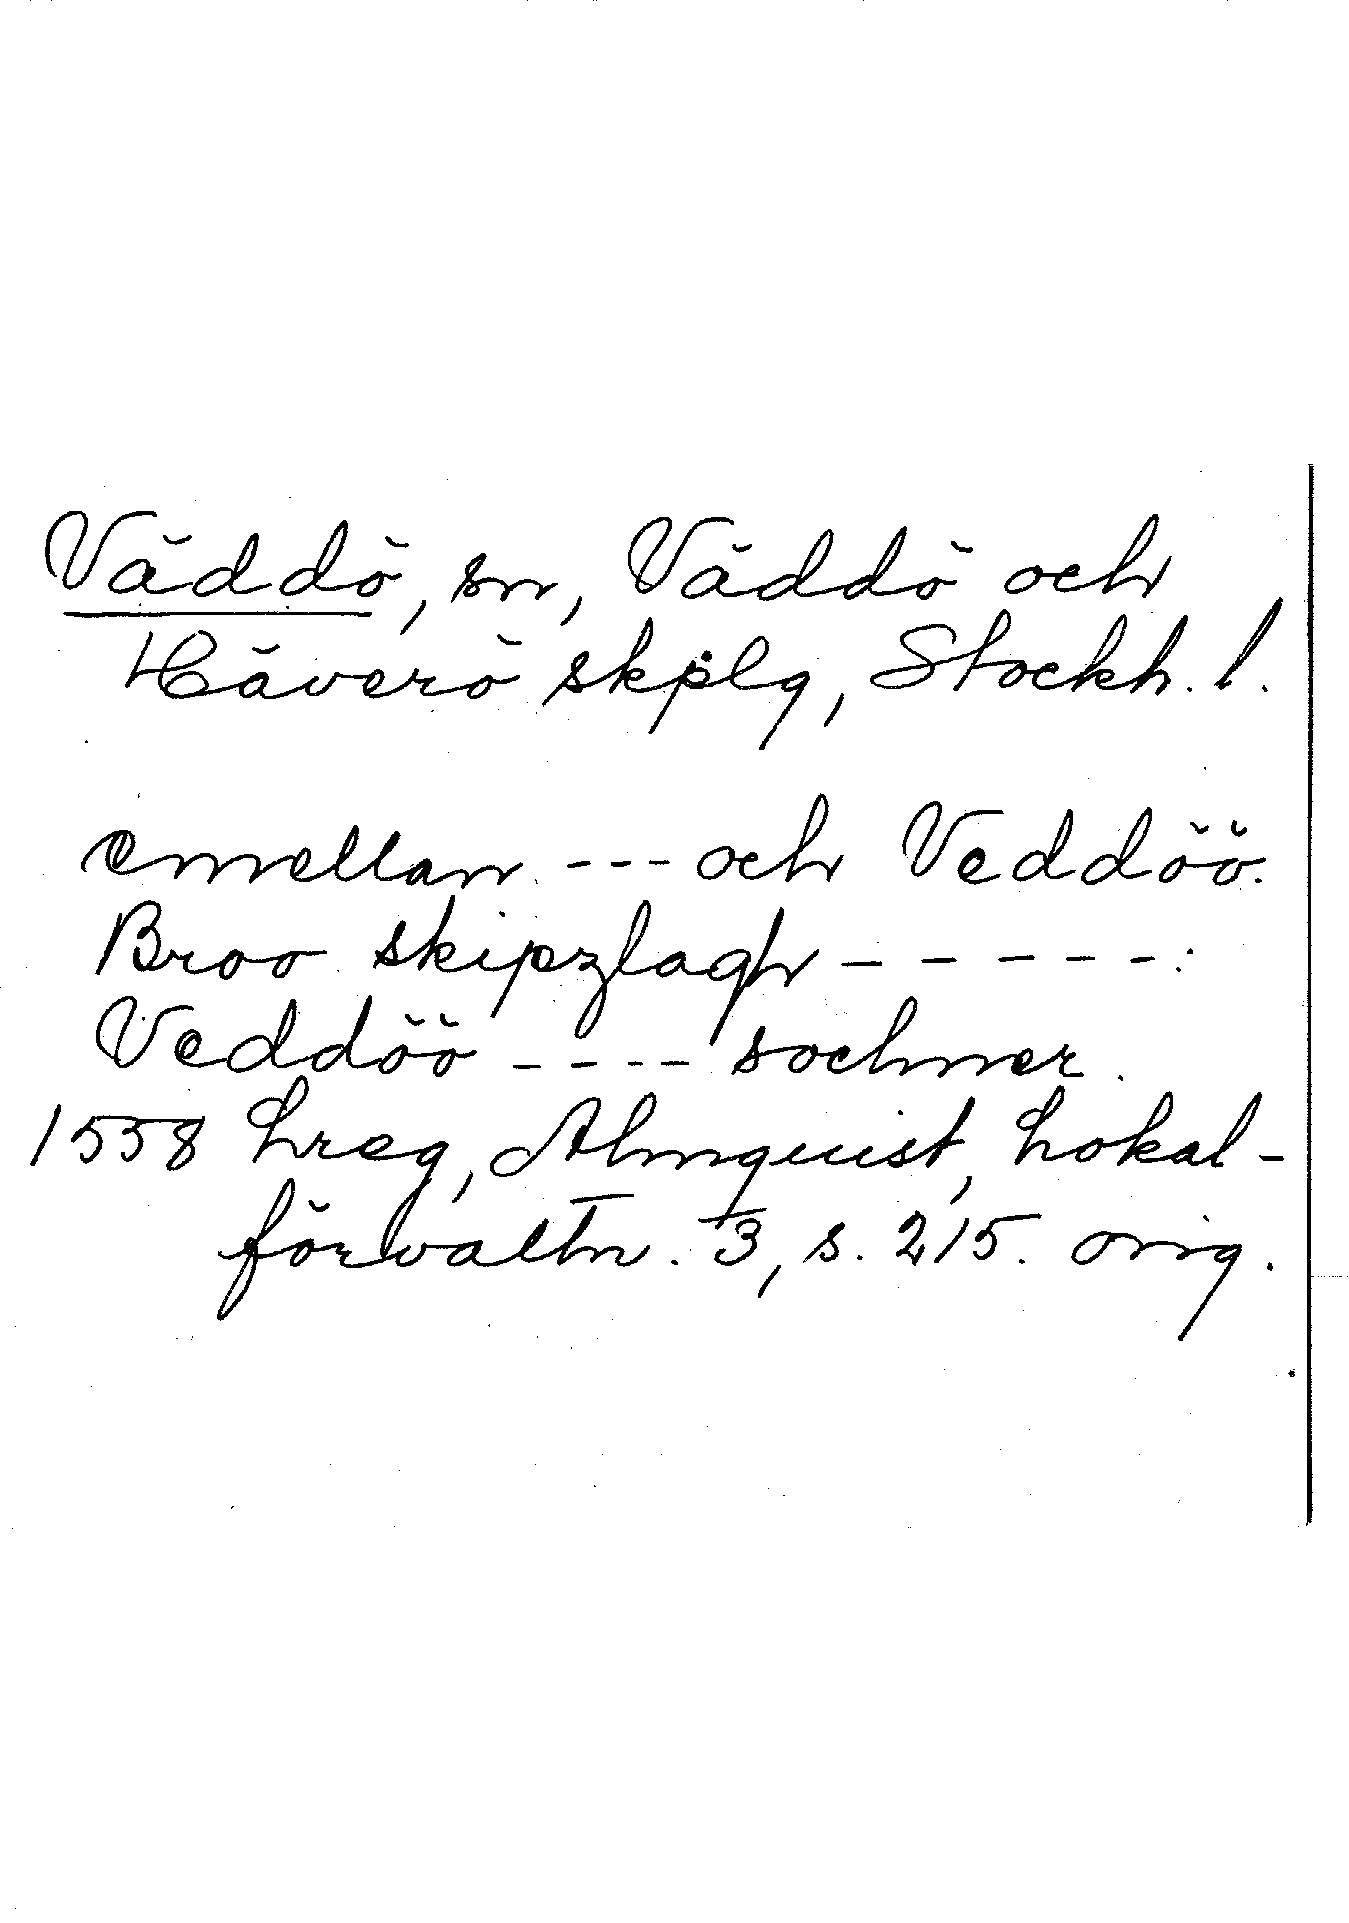 Väddö, sn, Väddö och
Häverö skplg, Stockh. l.
emellan --- och Veddöö.
Broo skipzlagh -----:
Veddöö ---- sochner.
1558 Lreg, Almquist, Lokal-
förvaltn. 3, s. 215. orig.